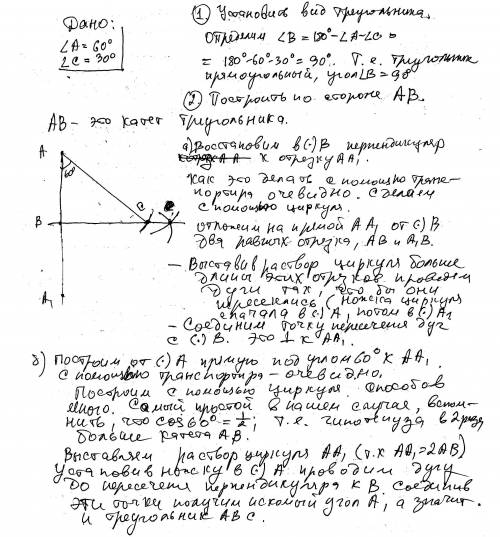 Дано:
∠A = 60°
∠C = 30°
① Установить вид треугольника.
Определим ∠B = 180° - ∠A - ∠C =
= 180° - 60° - 30° = 90°. Т.е. треугольник
прямоугольный, угол ∠B = 90°
② Построить по стороне AB.
AB - это катет треугольника.
а) Восстановим в (·) B перпендикуляр
к отрезку AA₁.
Как это делать с помощью транс-
портира очевидно. Сделаем
с помощью циркуля.
отложим на прямой AA₁ от (·) B
два равных отрезка, AB и A₁B.
- Выставив раствор циркуля больше
длины этих отрезков проведем
дуги так, что бы они
пересеклись (ножка циркуля
сначала в (·) A, потом в (·) A₁
- Соединим точку пересечения дуг
с (·) B. это ⊥ к AA₁.
A
60°
B
C
A₁
б) Построим от (·) A прямую под углом 60° к AA₁
с помощью транспортира - очевидно.
Построим с помощью циркуля. Способов
много. Самый простой в нашем случае, вспом-
нить, что cos 60° = ½, т.е. гипотенуза в 2 раза
больше катета AB.
Выставляем раствор циркуля AA₁ (т.к AA₁ = 2AB)
Установив ножку в (·) A проводим дугу
до пересечения перпендикуляра к B. Соединив
эти точки получим искомый угол A, а значит
и треугольник ABC.